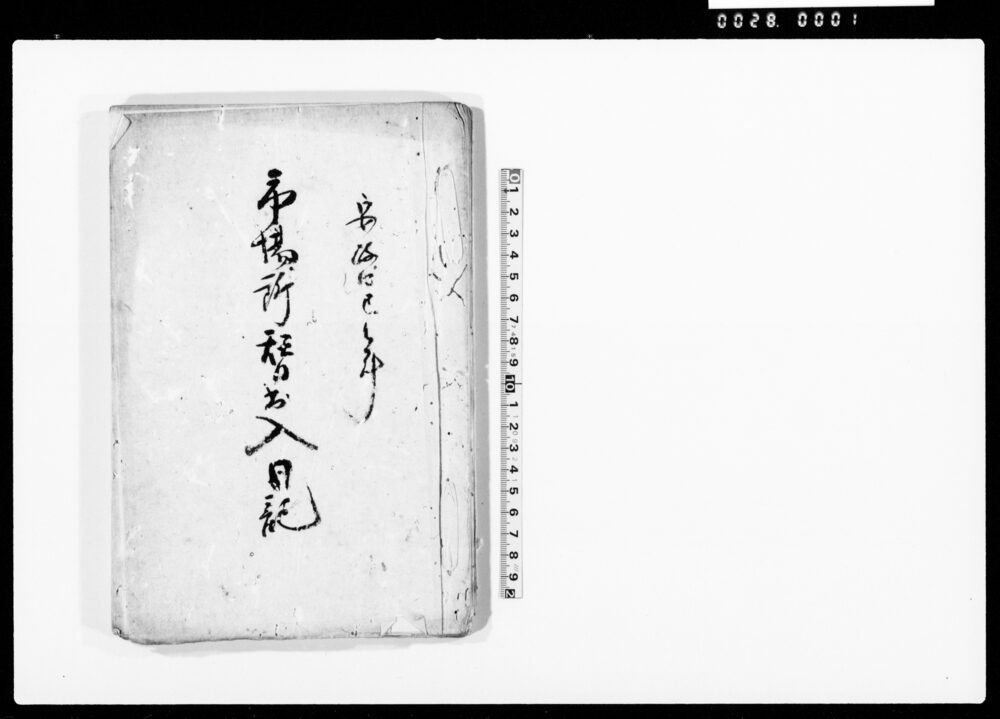 0028. 0001
安政四巳年
市場所替出入日記
0 1 2 3 4 5 6 7 8 9 10 1 2 3 4 5 6 7 8 9 2